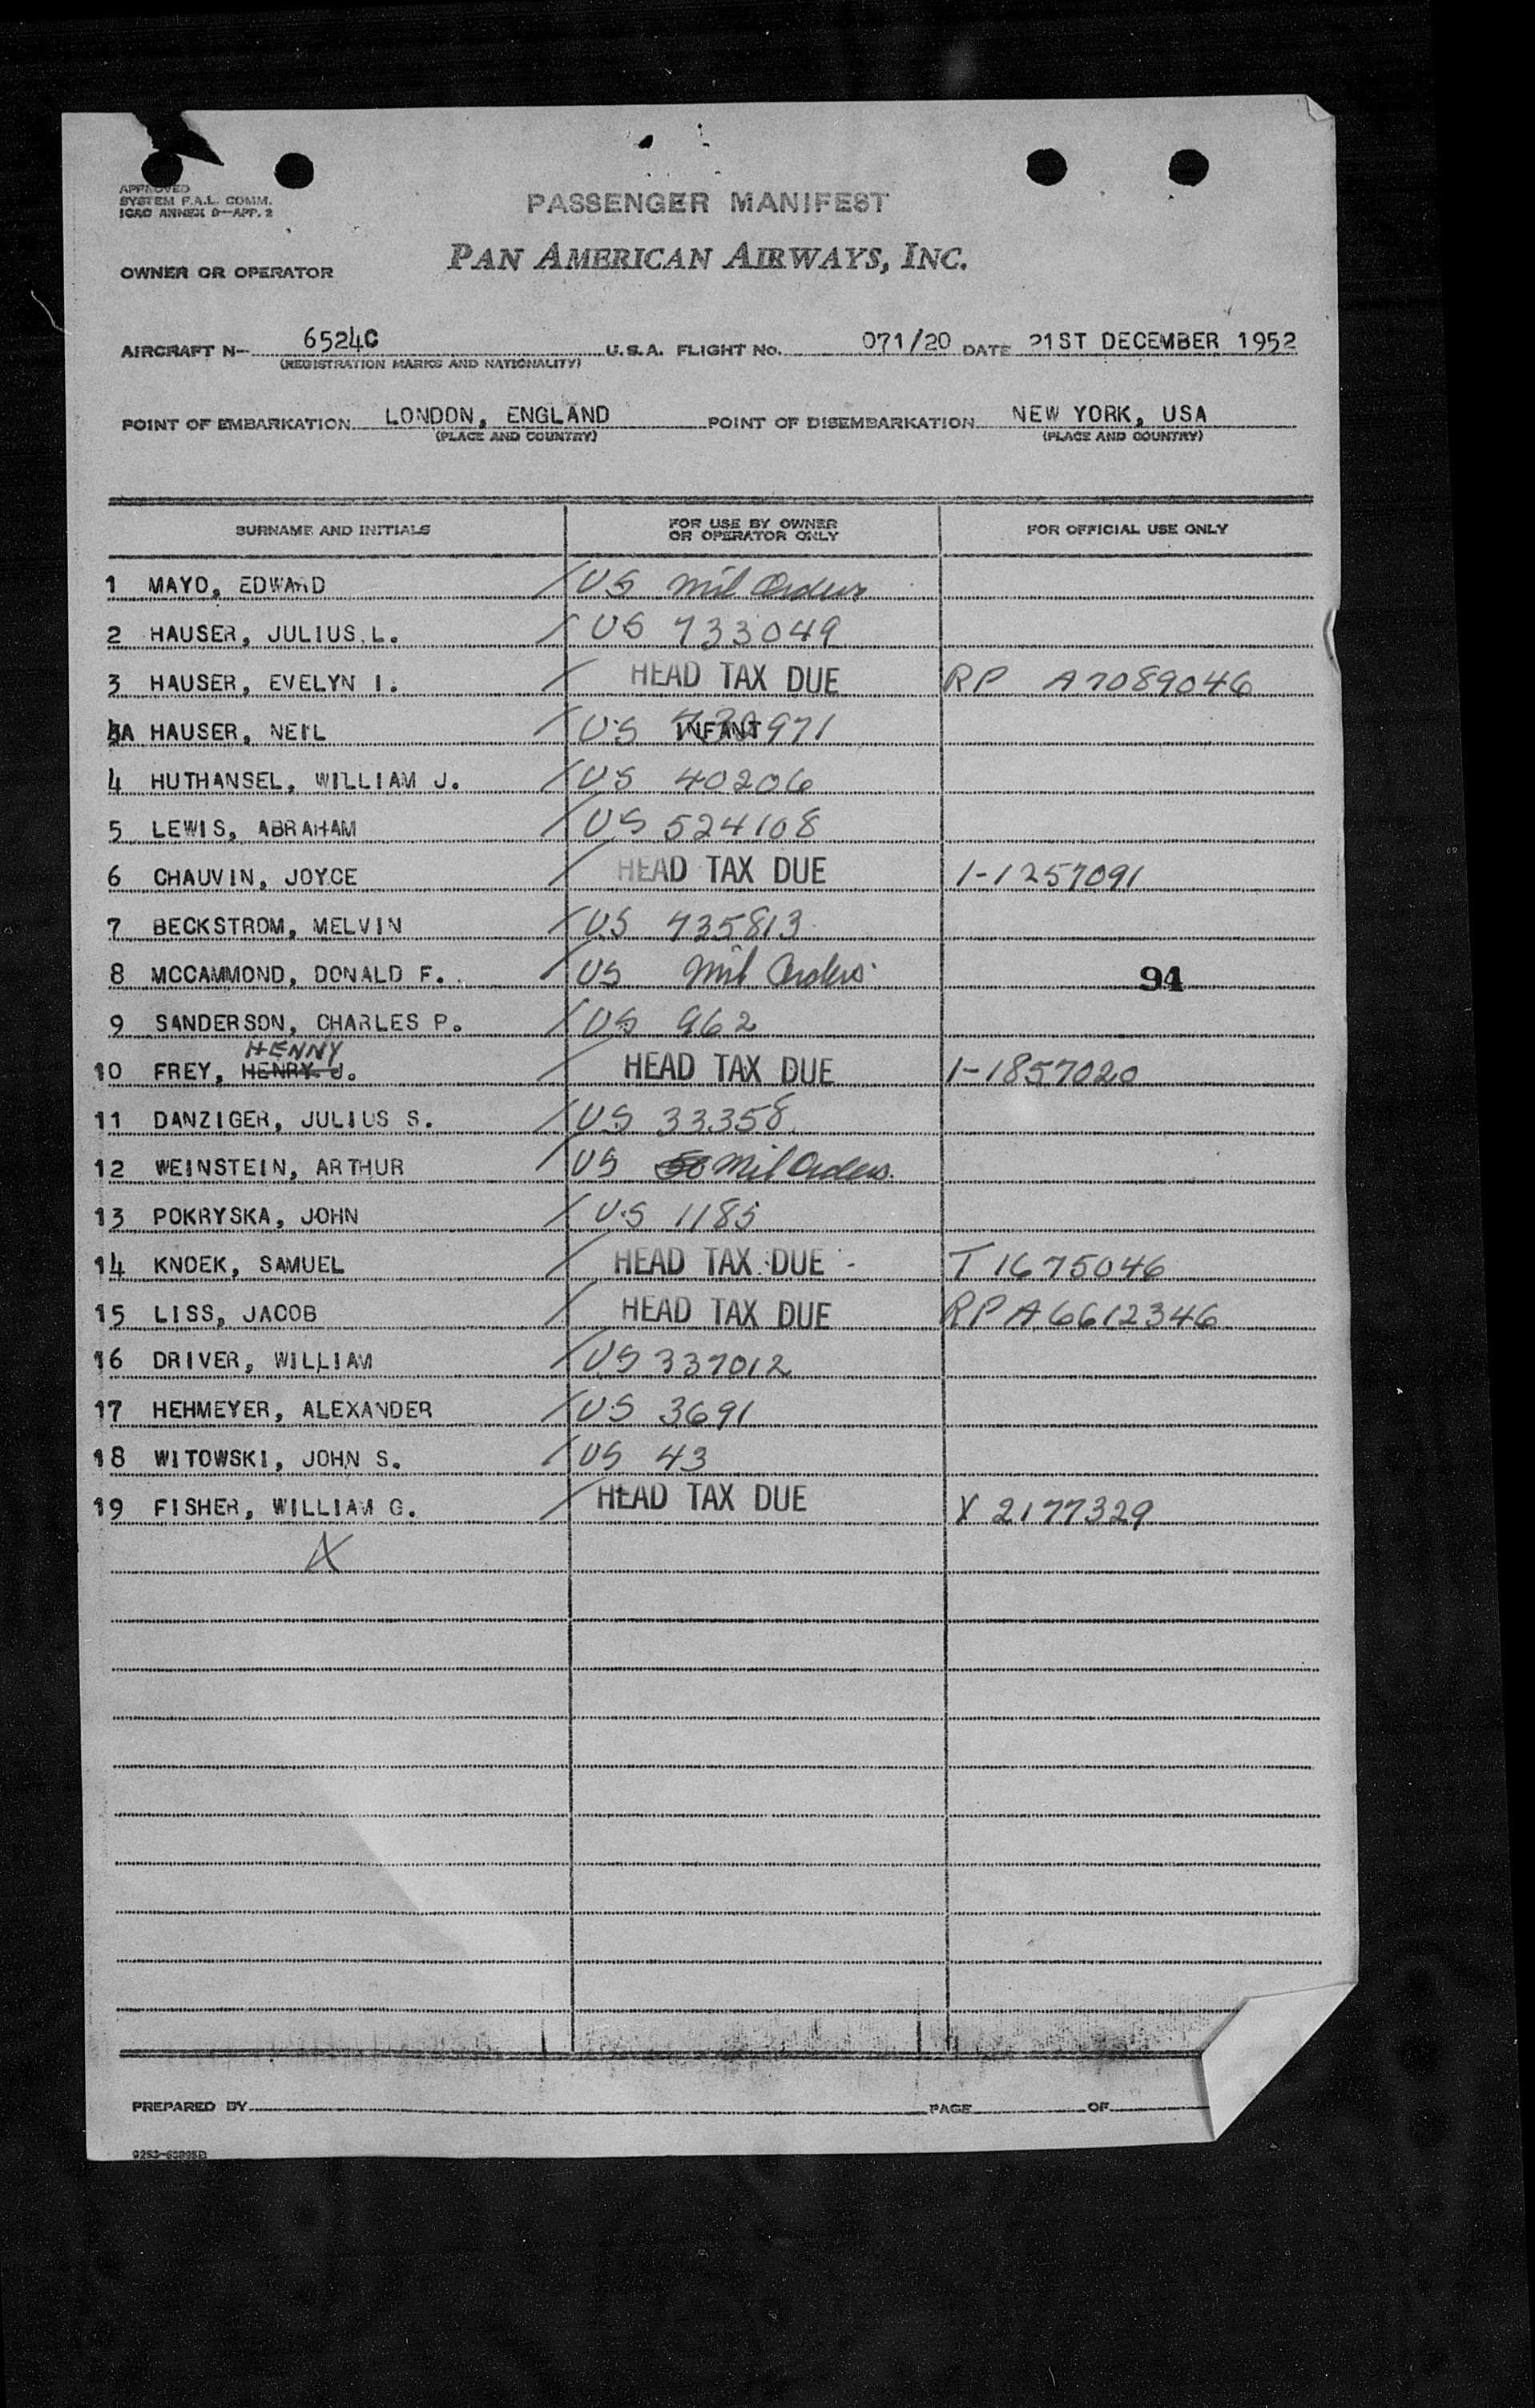 APPROVED
SYSTEM F.A.L. COMM.
ICAO ANNEX 9—APP. 2
PASSENGER MANIFEST
OWNER OR OPERATOR PAN AMERICAN AIRWAYS, INC.
AIRCRAFT N- 6524C U.S.A. FLIGHT No. 071/20 DATE 21ST DECEMBER 1952
(REGISTRATION MARKS AND NATIONALITY)
POINT OF EMBARKATION LONDON, ENGLAND POINT OF DISEMBARKATION NEW YORK, USA
(PLACE AND COUNTRY) (PLACE AND COUNTRY)
SURNAME AND INITIALS FOR USE BY OWNER OR OPERATOR ONLY FOR OFFICIAL USE ONLY
1 MAYO, EDWARD / US Mil Orders
2 HAUSER, JULIUS L. / US 733049
3 HAUSER, EVELYN I. / HEAD TAX DUE RP A7089046
3A HAUSER, NEIL / US INFANT 971
4 HUTHANSEL, WILLIAM J. / US 40206
5 LEWIS, ABRAHAM / US 524108
6 CHAUVIN, JOYCE / HEAD TAX DUE 1-1257091
7 BECKSTROM, MELVIN / US 735813
8 MCCAMMOND, DONALD F. / US Mil Orders 94
9 SANDERSON, CHARLES P. / US 962
HENNY
10 FREY, HENRY J. / HEAD TAX DUE 1-1857020
11 DANZIGER, JULIUS S. / US 33358
12 WEINSTEIN, ARTHUR / US Mil Orders.
13 POKRYSKA, JOHN / US 1185
14 KNOEK, SAMUEL / HEAD TAX DUE T 1675046
15 LISS, JACOB / HEAD TAX DUE RP A6612346
16 DRIVER, WILLIAM / US 337012
17 HEHMEYER, ALEXANDER / US 3691
18 WITOWSKI, JOHN S. / US 43
19 FISHER, WILLIAM G. / HEAD TAX DUE V 2177329
X
PREPARED BY PAGE OF